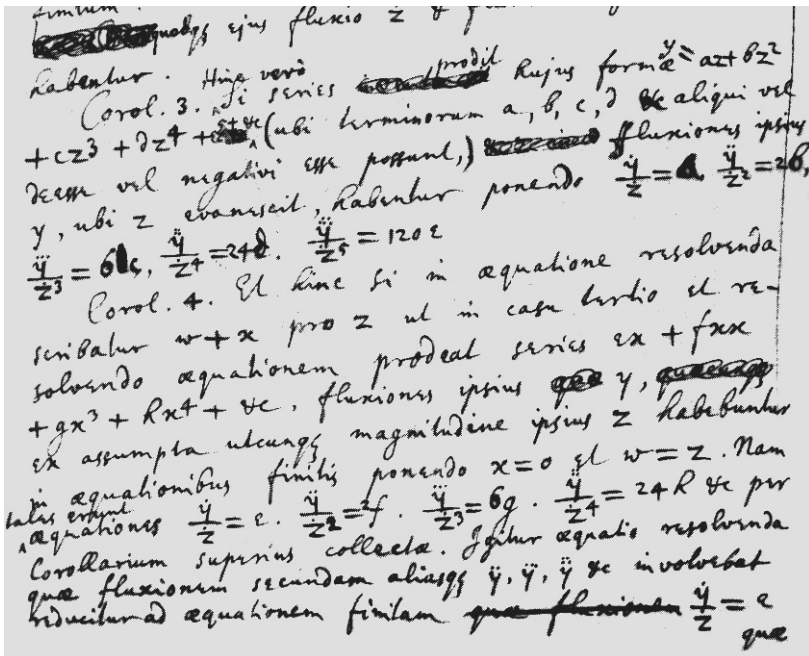 ejus fluxio ż &
habentur. Hinc verò
Corol. 3. Si series prodit hujus formæ y = az + bz²
+ cz³ + dz⁴ + ez⁵ + &c (ubi terminorum a, b, c, d &c aliqui vel
deesse vel negativi esse possunt,) fluxiones ipsius
y, ubi z evanescit, habentur ponendo ẏ/ż = a, ÿ/ż² = 2b,
y⃛/ż³ = 6c, y⃜/ż⁴ = 24d. ÿ/ż⁵ = 120e
Corol. 4. Et hinc si in æquatione resolvenda
scribatur w + x pro z ut in casu tertio et re-
solvendo æquationem prodeat series ex + fxx
+ gx³ + hx⁴ + &c, fluxiones ipsius y,
ex assumpta utcunqꝫ magnitudine ipsius z habebuntur
in æquationibus finitis ponendo x = 0 et w = z. Nam
tales erunt
æquationes ẏ/ż = e. ÿ/ż² = 2f. y⃛/ż³ = 6g. y⃜/ż⁴ = 24h &c per
Corollarium superius collectæ. Igitur æquatio resolvenda
quæ fluxionem secundam aliasqꝫ ÿ, y⃛, y⃜ &c involvebat
reducitur ad æquationem finitam quæ fluxionem ẏ/ż = e
quæ